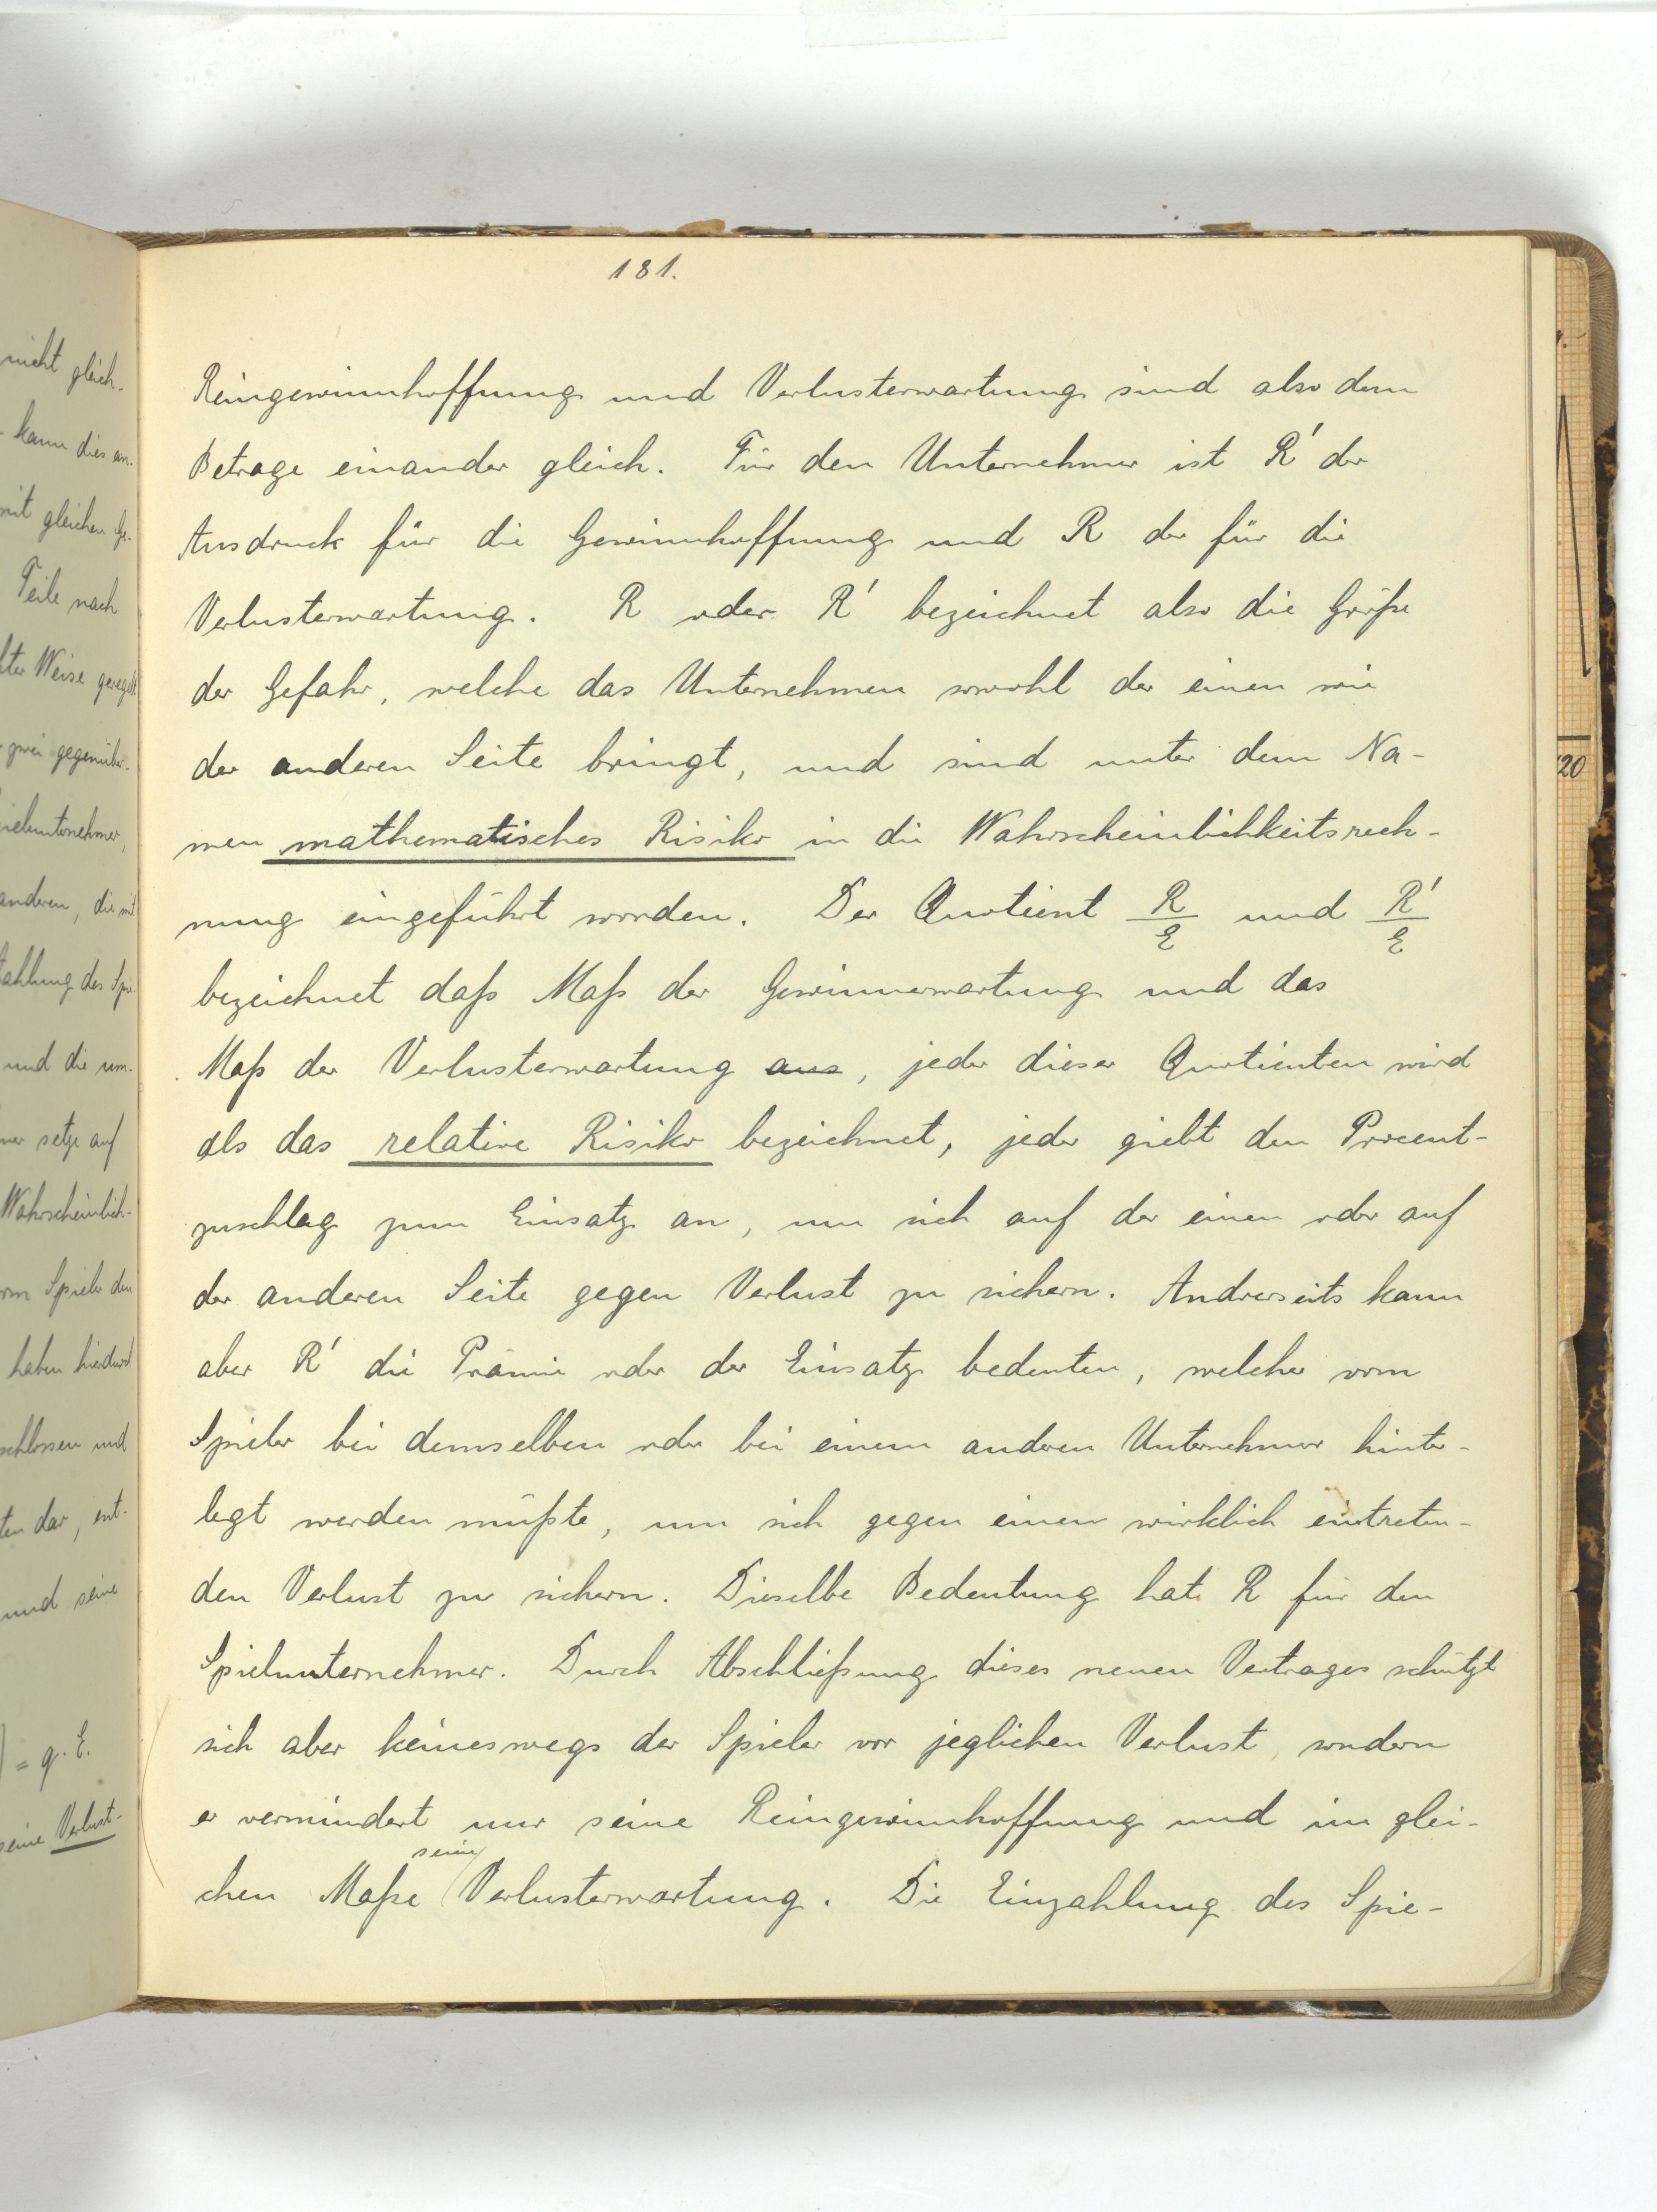 181.
Reingewinnhoffnung und Verlusterwartung sind also dem
Betrage einander gleich. Für den Unternehmer ist R' der
Ausdruck für die Gewinnhoffnung und R der für die
Verlusterwartung. R oder R' bezeichnet also die Größe
der Gefahr, welche das Unternehmen sowohl der einen wie
der anderen Seite bringt, und sind unter dem Na-
men mathematisches Risiko in die Wahrscheinlichkeitsrech-
nung eingeführt worden. Der Quotient R/E und R'/E
bezeichnet daß Maß der Gewinnerwartung und das
Maß der Verlusterwartung aus, jeder dieser Quotienten wird
als das relative Risiko bezeichnet, jeder giebt den Procent-
zuschlag zum Einsatz an, um sich auf der einen oder auf
der anderen Seite gegen Verlust zu sichern. Andrerseits kann
aber R' die Prämie oder der Einsatz bedeuten, welcher vom
Spieler bei demselben oder bei einem anderen Unternehmer hinter-
legt werden müßte, um sich gegen einen wirklich eintreten-
den Verlust zu sichern. Dieselbe Bedeutung hat R für den
Spielunternehmer. Durch Abschließung dieses neuen Vertrages schützt
sich aber keineswegs der Spieler vor jeglichen Verlust, sondern
er vermindert nur seine Reingewinnhoffnung und im glei-
chen Maße seine Verlusterwartung. Die Einzahlung des Spie-
nicht gleich-
kann dies an-
mit gleichen Ge-
Teile nach
Weise geregelt
zwei gegenüber-
anderen, die mit
und die um-
setze auf
Wahrscheinlich-
Spieler den
haben hierdurch
schlossen und
dar, ent-
und seine
= q. E.
seine Verlust-
20